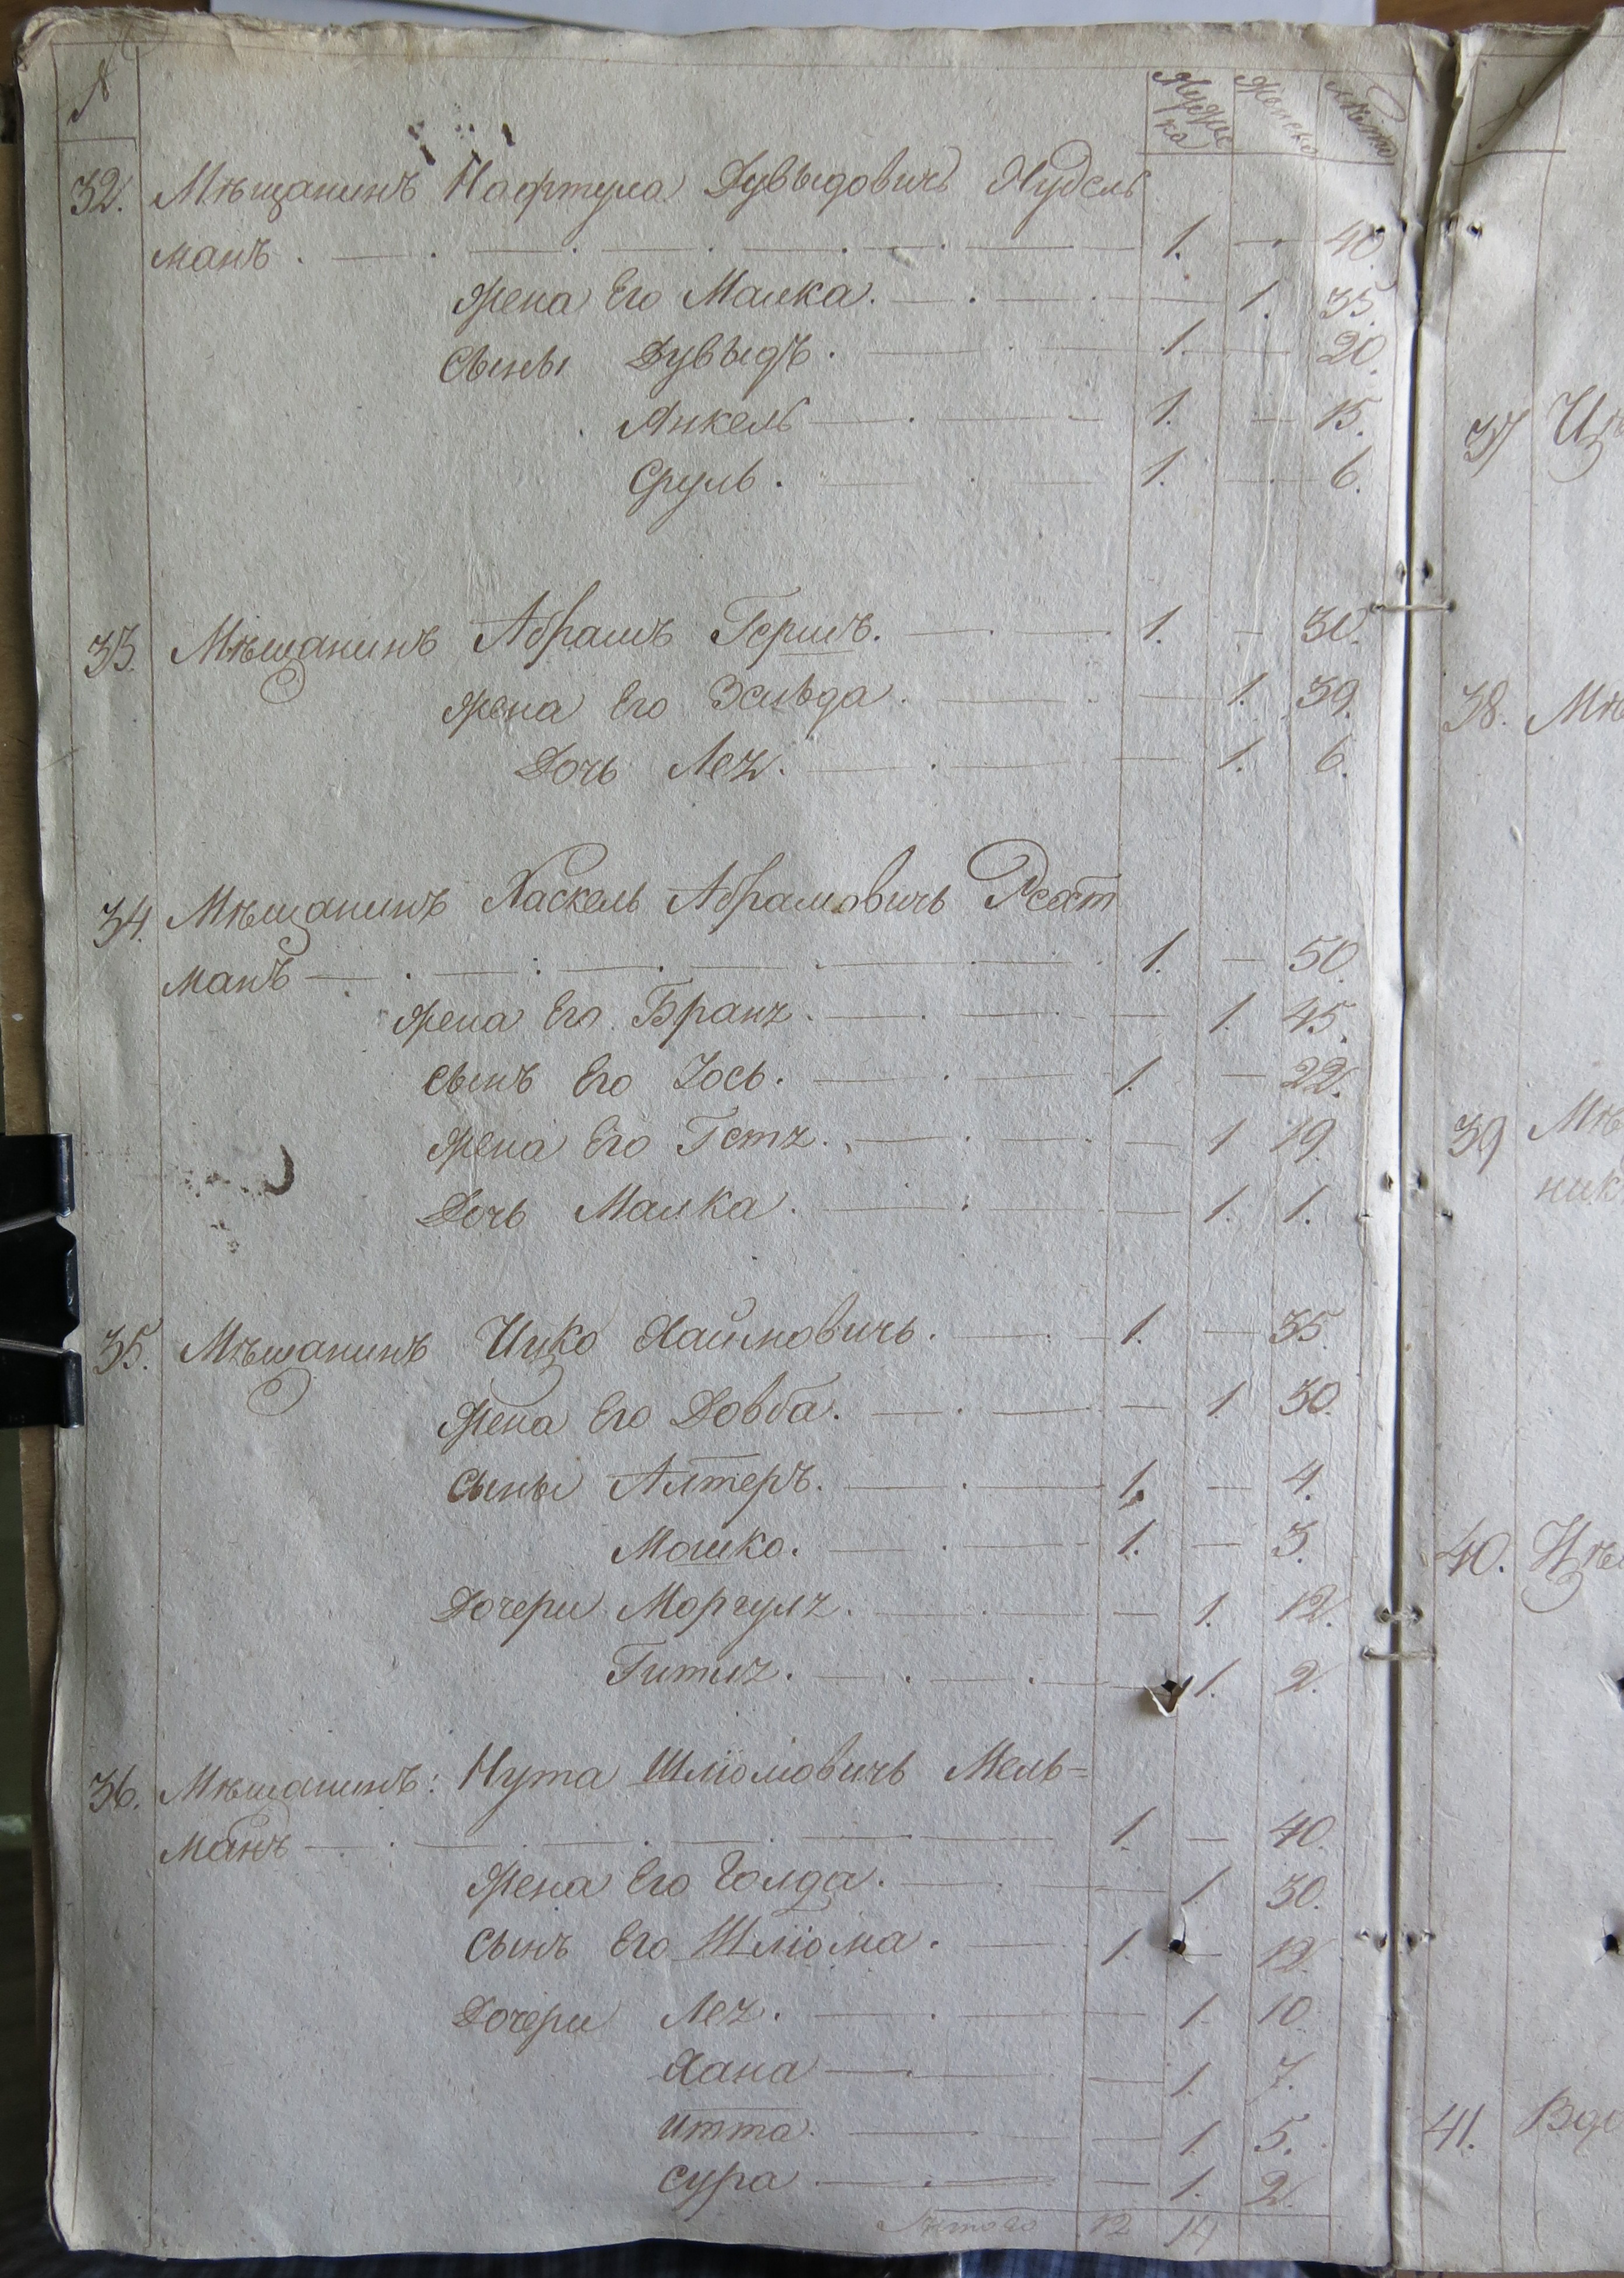 № Мужеска Женска Лѣта
32. Мѣщанинъ Нафтула Дувыдовичь Нудель
манъ 1. 40.
Жена Его Малка. 1. 35.
Сыны Дувыдъ. 1. 20.
Янкель 1. 15.
Сруль. 1. 6.
33. Мѣщанинъ Абрамъ Гершъ. 1. 30.
Жена Его Эльда. 1. 39.
Дочь Лея. 1. 6.
34. Мѣщанинъ Хаскель Абрамовичь
манъ 1. 50
Жена Его Браня. 1. 45.
Сынъ Его Іось. 1. 22.
Жена Его Гетя. 1 19.
Дочь Малка. 1. 1.
35. Мѣщанинъ Ицко Хаймовичь. 1. 35.
Жена Его Довба. 1 30.
Сыны Алтеръ. 1. 4.
Мошко. 1. 3.
Дочери Моргуля. 1. 12.
Гитля. 1. 2.
36. Мѣщанинъ: Нута Шлiомовичь Мель=
манъ 1. 40.
Жена Его Голда. 1 30.
Сынъ Его Шлiома. 1. 12.
Дочери Лея. 1. 10
Хана 1. 7.
Итта. 1. 5.
Сура 1. 2.
Итого 12 14
37
38. Мѣ
39 Мѣ
ник
40.
41. Вдо